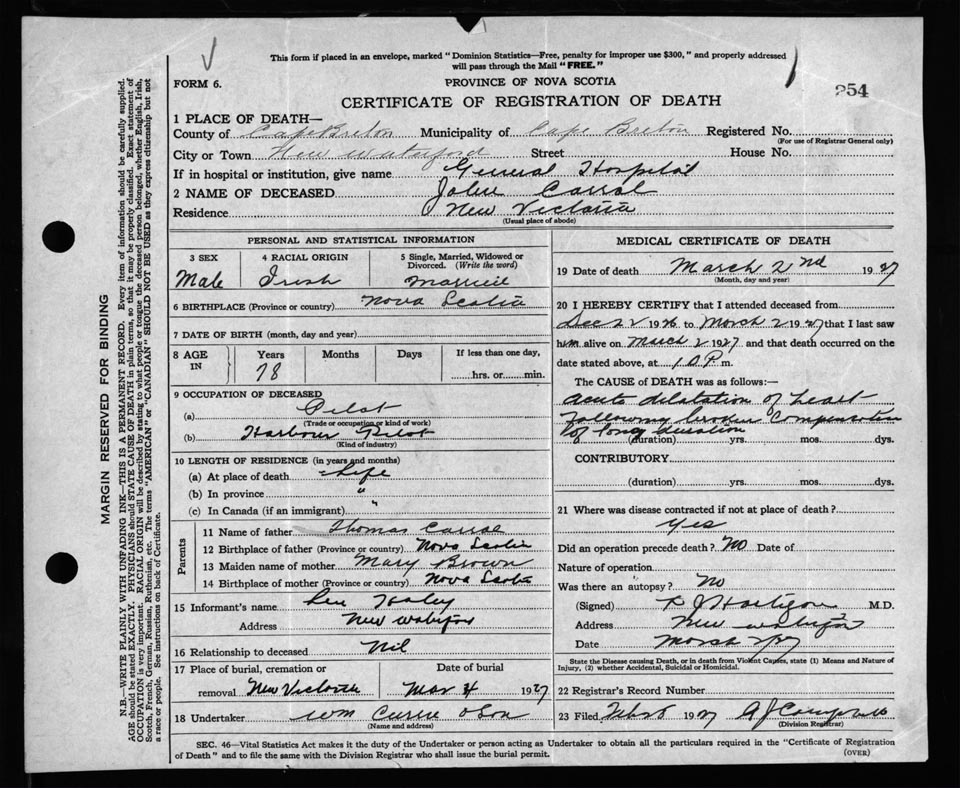 This form if placed in an envelope, marked "Dominion Statistics—Free, penalty for improper use $300," and properly addressed
will pass through the Mail "FREE."
FORM 6.
PROVINCE OF NOVA SCOTIA
254
CERTIFICATE OF REGISTRATION OF DEATH
1 PLACE OF DEATH—
County of Cape Breton Municipality of Cape Breton Registered No.
(For use of Registrar General only)
City or Town New Waterford Street House No.
If in hospital or institution, give name General Hospital
2 NAME OF DECEASED John Carral
Residence New Victoria
(Usual place of abode)
PERSONAL AND STATISTICAL INFORMATION
3 SEX 4 RACIAL ORIGIN 5 Single, Married, Widowed or
Divorced. (Write the word)
Male Irish Married
6 BIRTHPLACE (Province or country) Nova Scotia
7 DATE OF BIRTH (month, day and year)
8 AGE IN Years Months Days If less than one day,
78 hrs. or min.
9 OCCUPATION OF DECEASED
(a) Pilot
(Trade or occupation or kind of work)
(b) Harbour Pilot
(Kind of industry)
10 LENGTH OF RESIDENCE (in years and months)
(a) At place of death Life
(b) In province "
(c) In Canada (if an immigrant) "
Parents
11 Name of father Thomas Carral
12 Birthplace of father (Province or country) Nova Scotia
13 Maiden name of mother Mary Brown
14 Birthplace of mother (Province or country) Nova Scotia
15 Informant's name
Address New Waterford
16 Relationship to deceased Nil
17 Place of burial, cremation or Date of burial
removal New Victoria Mar 4 1927
18 Undertaker Wm & Son
(Name and address)
MEDICAL CERTIFICATE OF DEATH
19 Date of death March 2nd 1927
(Month, day and year)
20 I HEREBY CERTIFY that I attended deceased from
Dec 22 1926 to March 2 1927 that I last saw
him alive on March 2 1927 and that death occurred on the
date stated above, at 10 P m.
The CAUSE of DEATH was as follows:—
acute dilatation of heart
following broken Compensation
of long duration
(duration) yrs. mos. dys.
CONTRIBUTORY
(duration) yrs. mos. dys.
21 Where was disease contracted if not at place of death?
Yes
Did an operation precede death? No Date of
Nature of operation
Was there an autopsy? No
(Signed) M.D.
Address New Waterford
Date March 2/27
State the Disease causing Death, or in death from Violent Causes, state (1) Means and Nature of
Injury, (2) whether Accidental, Suicidal or Homicidal.
22 Registrar's Record Number
23 Filed 1927
(Division Registrar)
SEC. 46—Vital Statistics Act makes it the duty of the Undertaker or person acting as Undertaker to obtain all the particulars required in the "Certificate of Registration
of Death" and to file the same with the Division Registrar who shall issue the burial permit. (OVER)
MARGIN RESERVED FOR BINDING
N.B.—WRITE PLAINLY WITH UNFADING INK—THIS IS A PERMANENT RECORD. Every item of information should be carefully supplied.
AGE should be stated EXACTLY. PHYSICIANS should STATE CAUSE OF DEATH in plain terms, so that it may be properly classified. Exact statement of
OCCUPATION is very important. RACIAL ORIGIN will be described by stating to what people or tongue the deceased person belonged, whether English, Irish,
Scotch, French, German, Russian, Ruthenian, etc. The terms "AMERICAN" or "CANADIAN" SHOULD NOT BE USED as they express citizenship but not
a race or people. See instructions on back of Certificate.